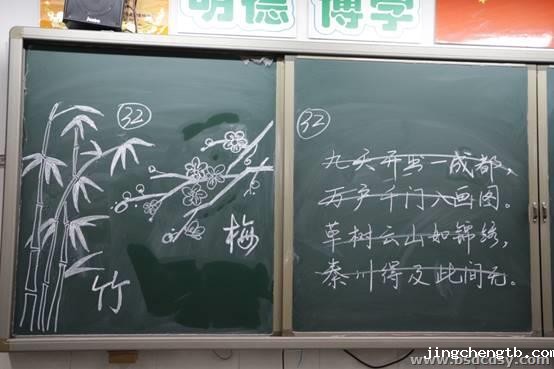 明德 博学
32
竹
梅
32
九天开出一成都，
万户千门入画图。
草树云山如锦绣，
秦川得及此间无。
jingchengtb.com
www.bsdcdsy.com